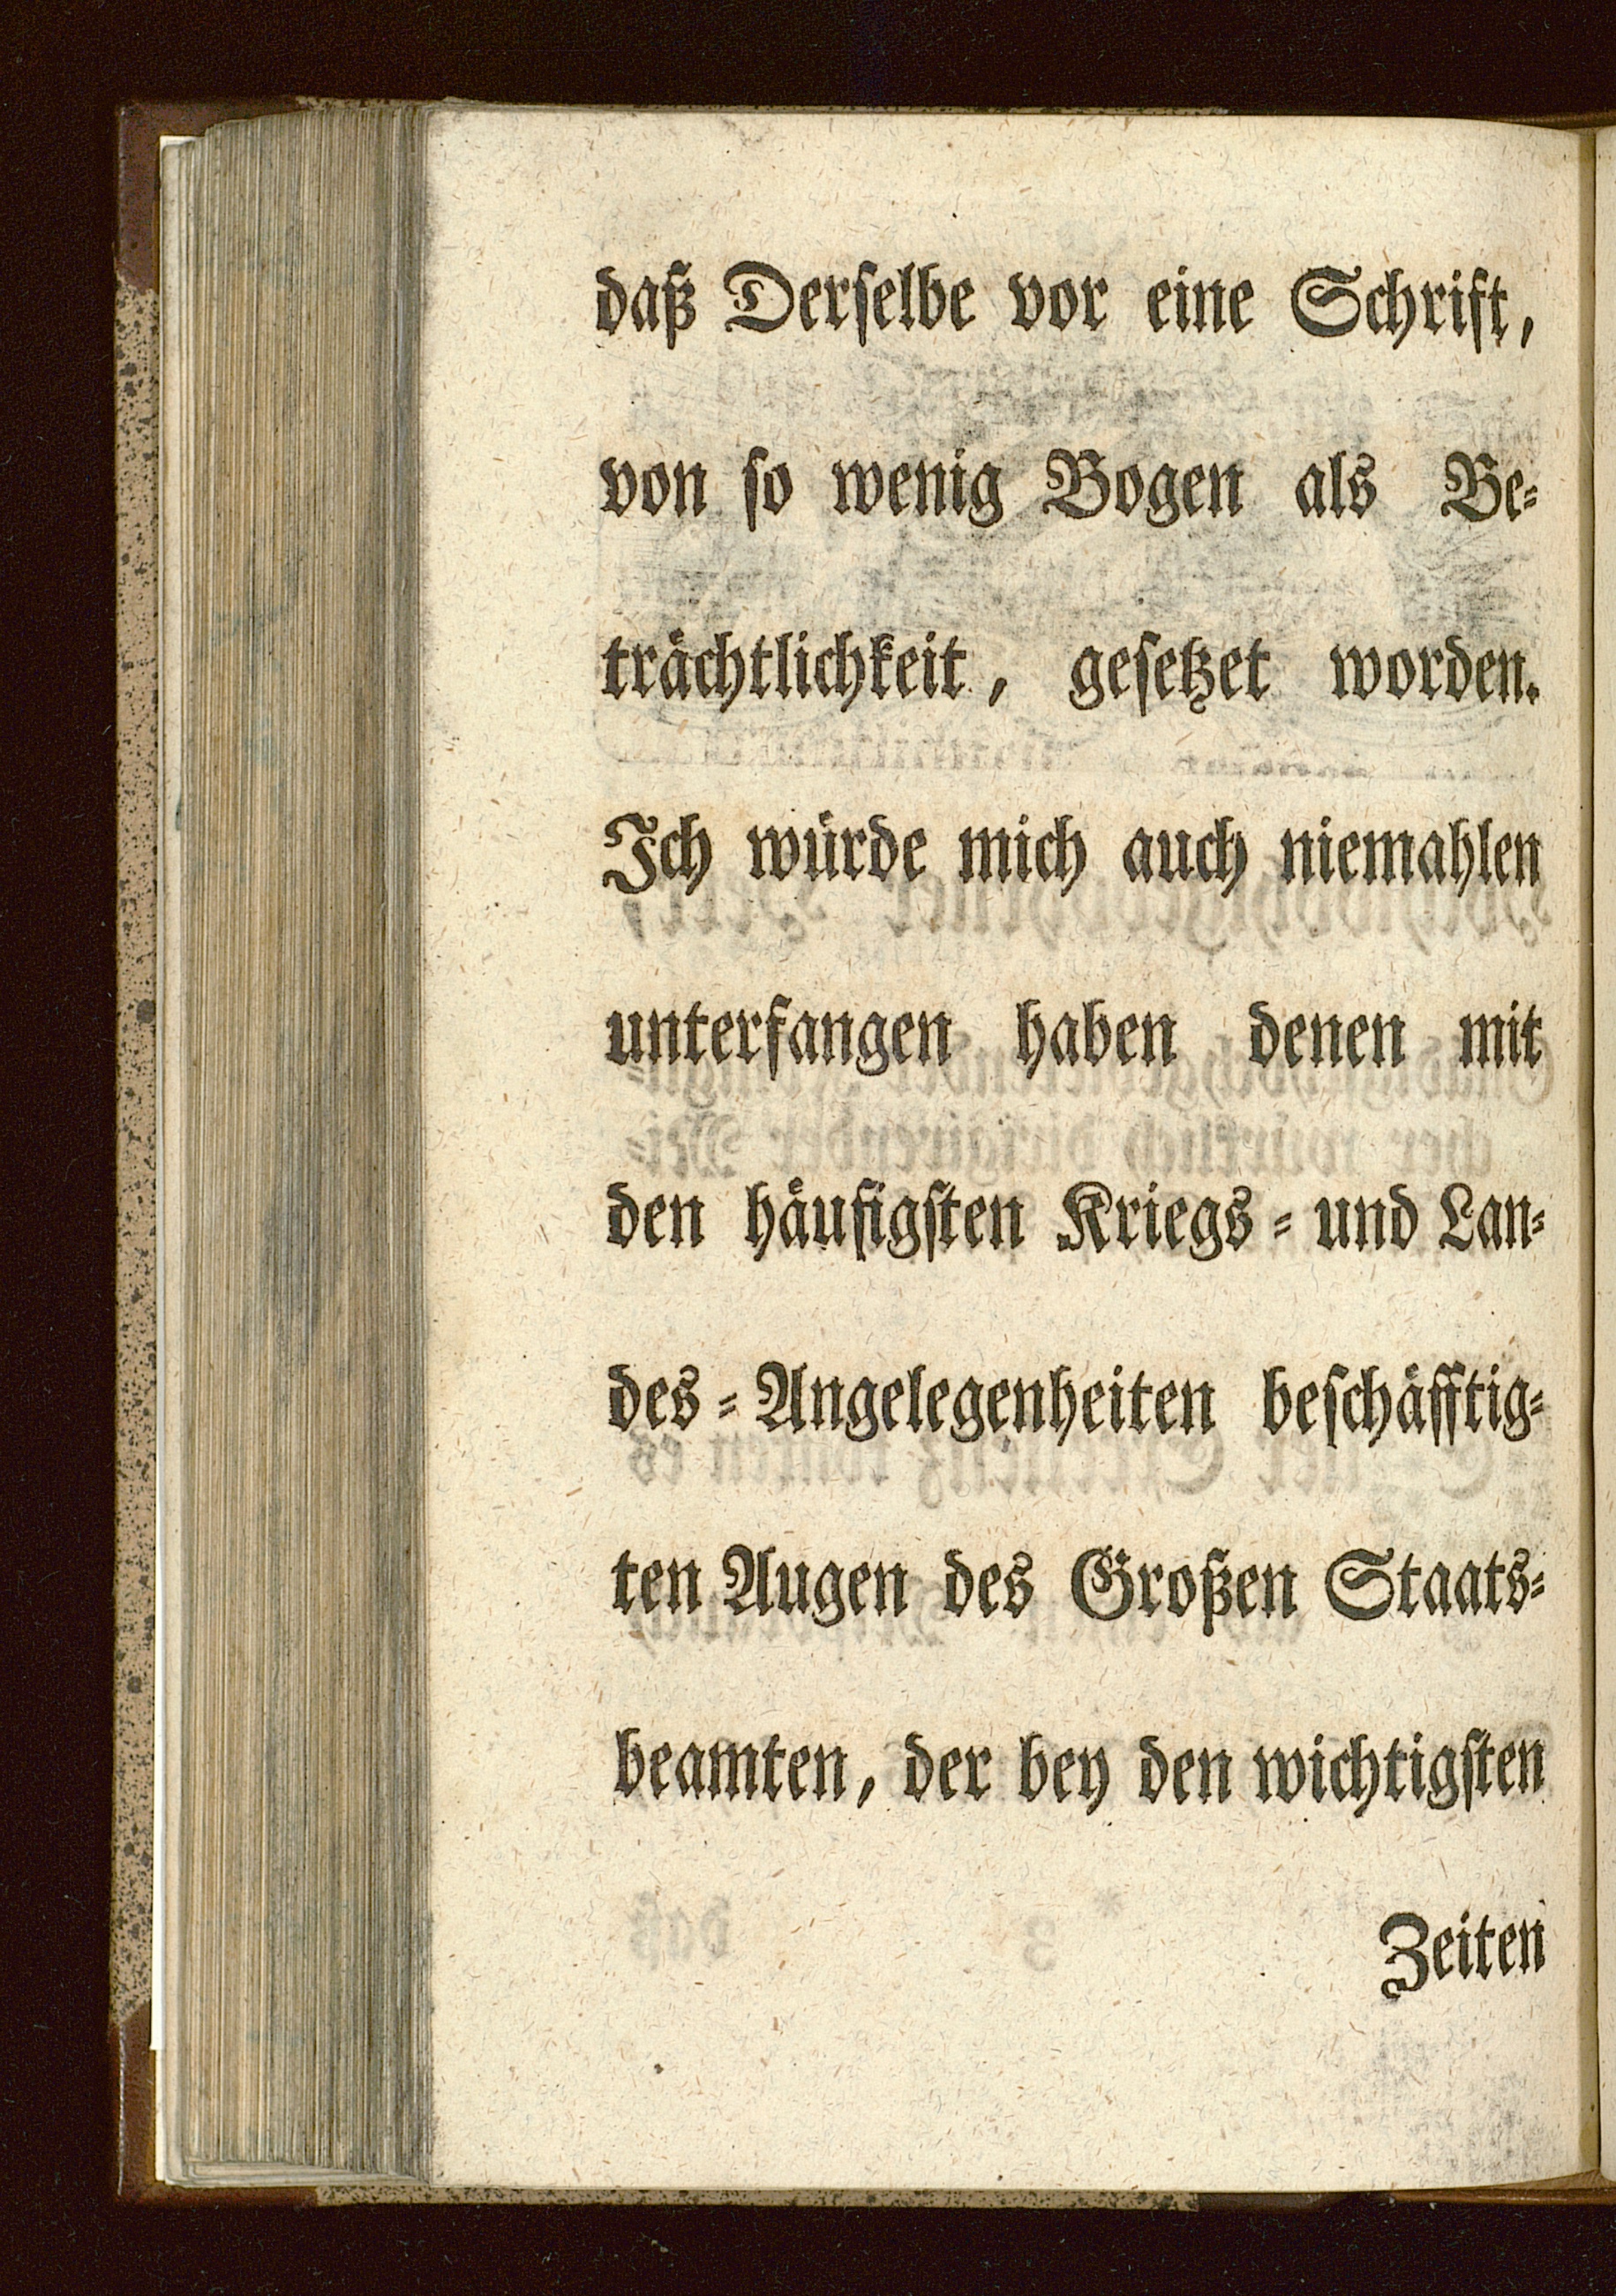 daß Derselbe vor eine Schrift,
von so wenig Bogen als Be-
trächtlichkeit, gesetzet worden.
Ich würde mich auch niemahlen
unterfangen haben denen mit
den häufigsten Kriegs- und Lan-
des-Angelegenheiten beschäfftig-
ten Augen des Großen Staats-
beamten, der bey den wichtigsten
Zeiten